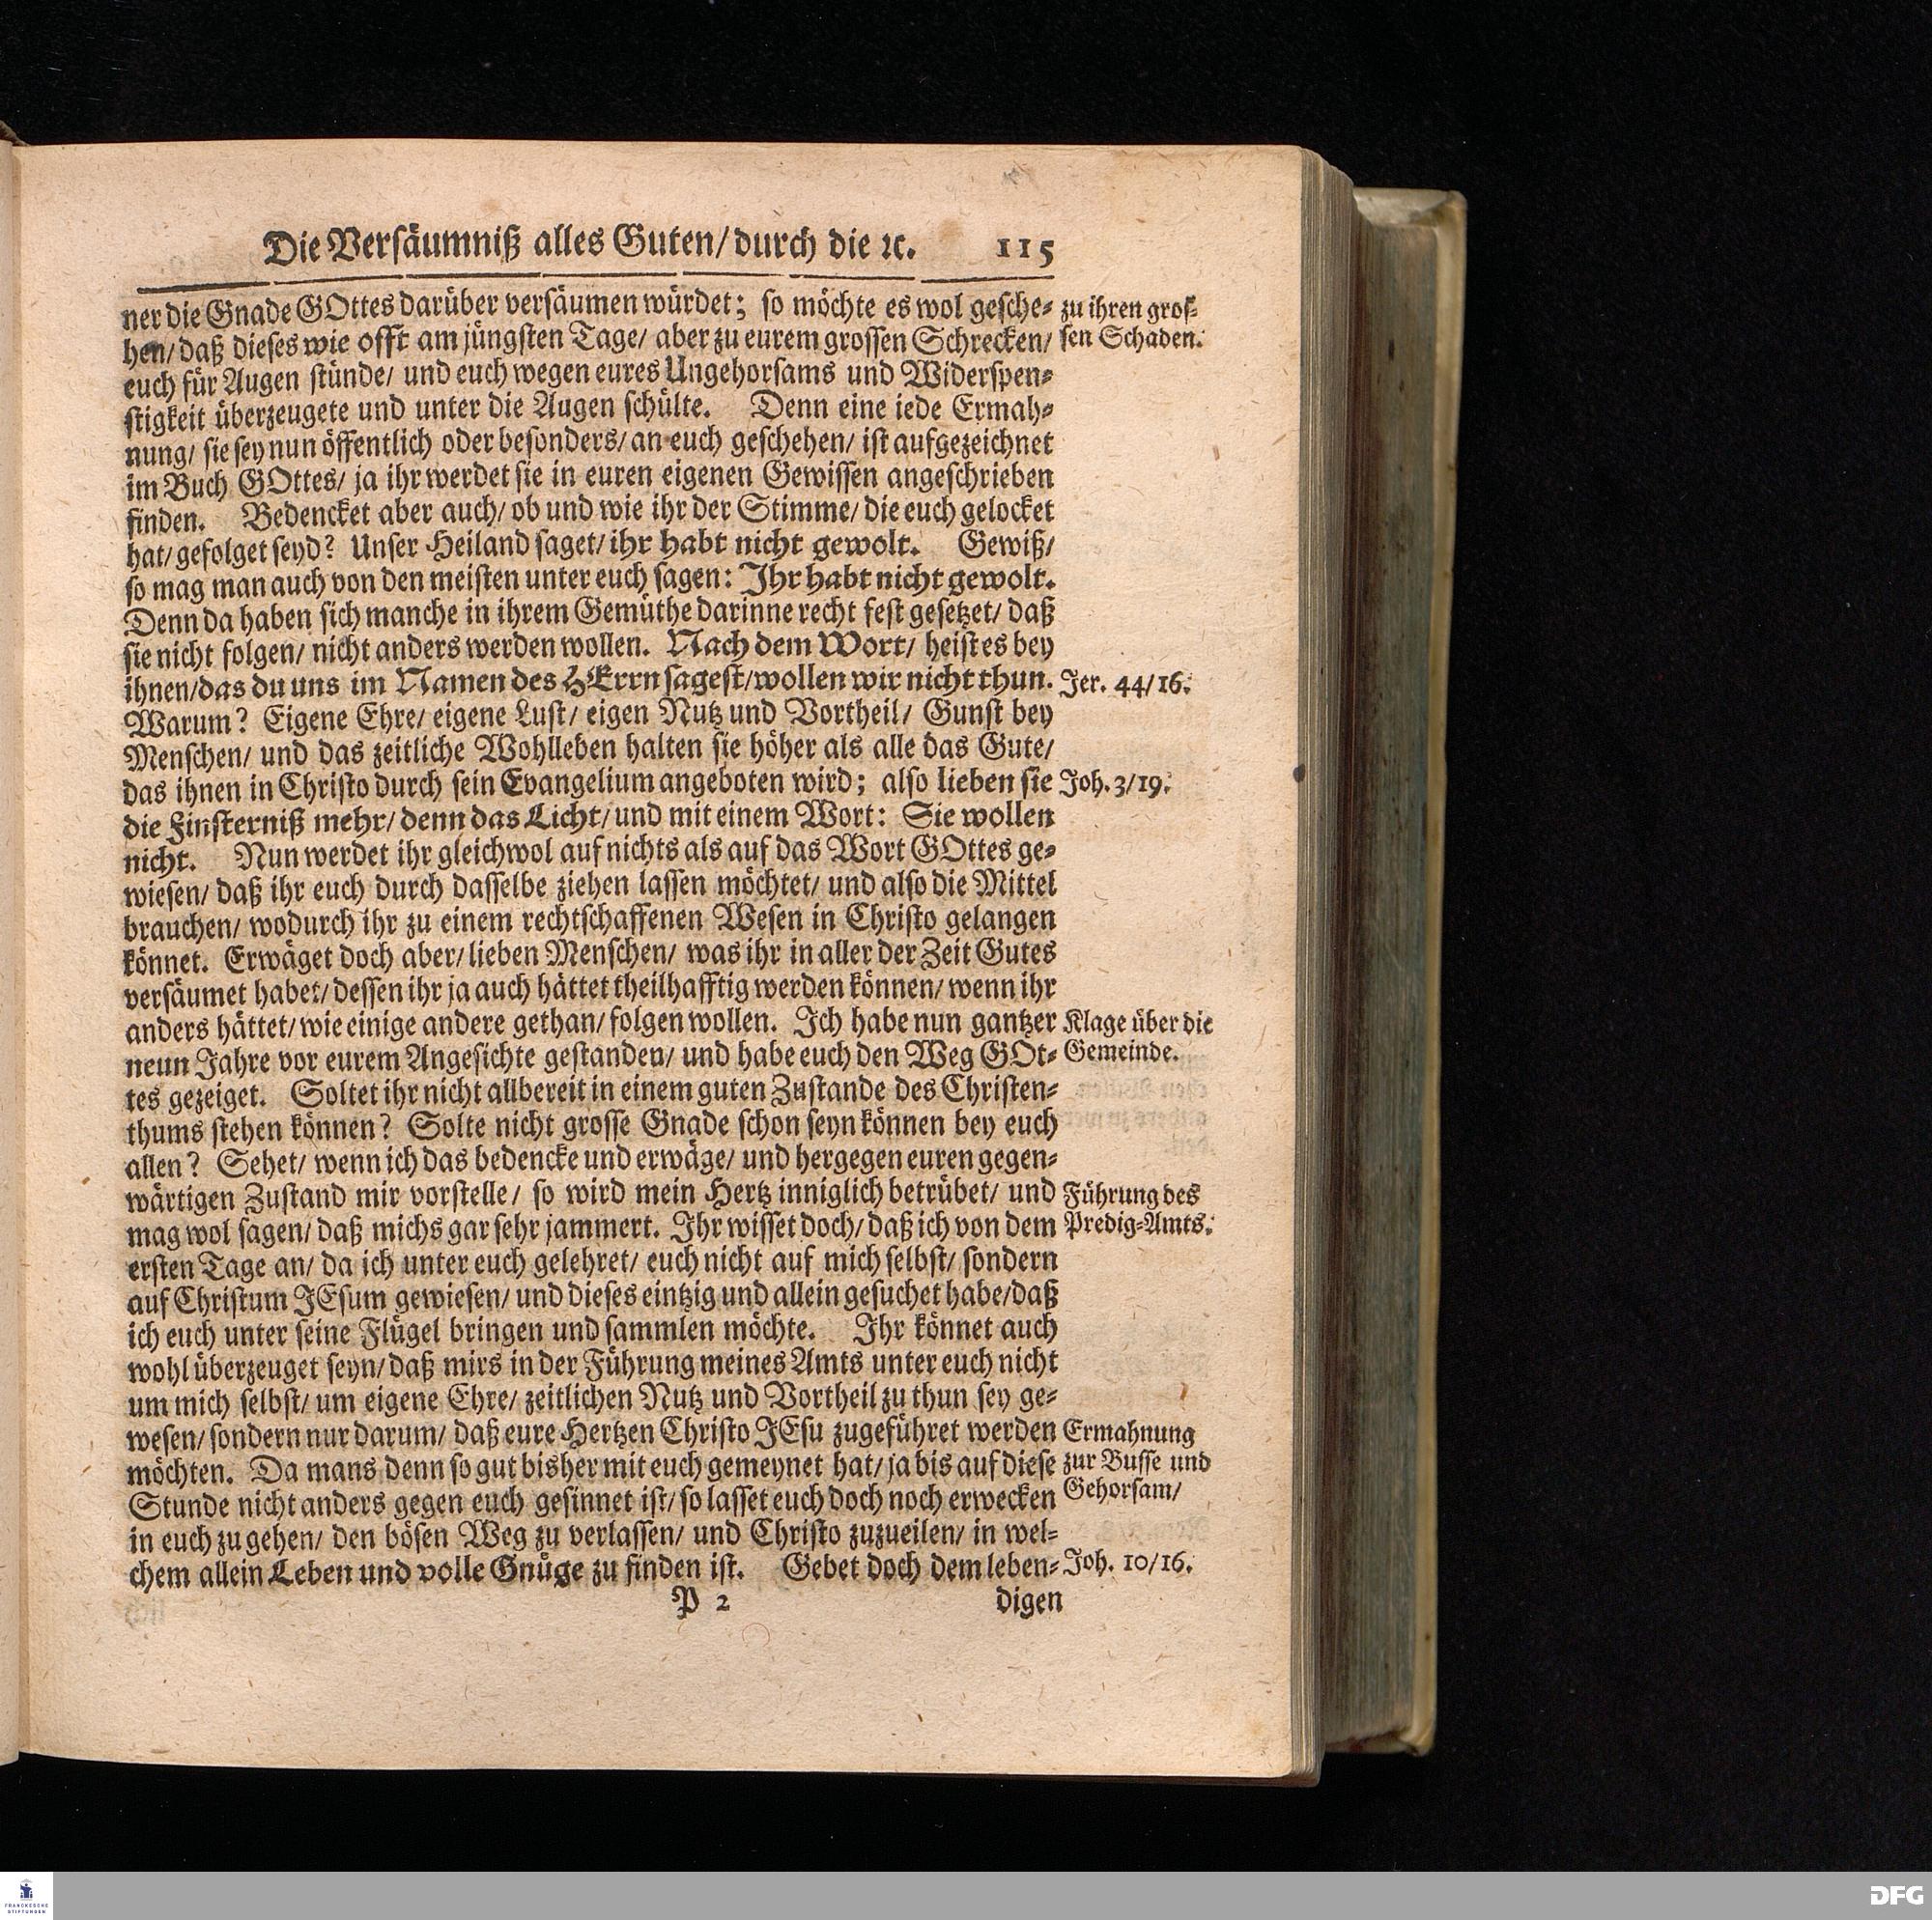 Die Versäumniß alles Guten/ durch die ꝛc. 115
ner die Gnade GOttes darüber versäumen würdet; so möchte es wol gesche-
hen/ daß dieses wie offt am jüngsten Tage/ aber zu eurem grossen Schrecken/
euch für Augen stünde/ und euch wegen eures Ungehorsams und Widerspen-
stigkeit überzeugete und unter die Augen schülte. Denn eine iede Ermah-
nung/ sie sey nun öffentlich oder besonders/ an euch geschehen/ ist aufgezeichnet
im Buch GOttes/ ja ihr werdet sie in euren eigenen Gewissen angeschrieben
finden. Bedencket aber auch/ ob und wie ihr der Stimme/ die euch gelocket
hat/ gefolget seyd? Unser Heiland saget/ ihr habt nicht gewolt. Gewiß/
so mag man auch von den meisten unter euch sagen: Ihr habt nicht gewolt.
Denn da haben sich manche in ihrem Gemüthe darinne recht fest gesetzet/ daß
sie nicht folgen/ nicht anders werden wollen. Nach dem Wort/ heist es bey
ihnen/ das du uns im Namen des HErrn sagest/ wollen wir nicht thun.
Warum? Eigene Ehre/ eigene Lust/ eigen Nutz und Vortheil/ Gunst bey
Menschen/ und das zeitliche Wohlleben halten sie höher als alle das Gute/
das ihnen in Christo durch sein Evangelium angeboten wird; also lieben sie
die Finsterniß mehr/ denn das Licht/ und mit einem Wort: Sie wollen
nicht. Nun werdet ihr gleichwol auf nichts als auf das Wort GOttes ge-
wiesen/ daß ihr euch durch dasselbe ziehen lassen möchtet/ und also die Mittel
brauchen/ wodurch ihr zu einem rechtschaffenen Wesen in Christo gelangen
könnet. Erwäget doch aber/ lieben Menschen/ was ihr in aller der Zeit Gutes
versäumet habet/ dessen ihr ja auch hättet theilhafftig werden können/ wenn ihr
anders hättet/ wie einige andere gethan/ folgen wollen. Ich habe nun gantzer
neun Jahre vor eurem Angesichte gestanden/ und habe euch den Weg GOt-
tes gezeiget. Soltet ihr nicht allbereit in einem guten Zustande des Christen-
thums stehen können? Solte nicht grosse Gnade schon seyn können bey euch
allen? Sehet/ wenn ich das bedencke und erwäge/ und hergegen euren gegen-
wärtigen Zustand mir vorstelle/ so wird mein Hertz inniglich betrübet/ und
mag wol sagen/ daß michs gar sehr jammert. Ihr wisset doch/ daß ich von dem
ersten Tage an/ da ich unter euch gelehret/ euch nicht auf mich selbst/ sondern
auf Christum JEsum gewiesen/ und dieses eintzig und allein gesuchet habe/ daß
ich euch unter seine Flügel bringen und sammlen möchte. Ihr könnet auch
wohl überzeuget seyn/ daß mirs in der Führung meines Amts unter euch nicht
um mich selbst/ um eigene Ehre/ zeitlichen Nutz und Vortheil zu thun sey ge-
wesen/ sondern nur darum/ daß eure Hertzen Christo JEsu zugeführet werden
möchten. Da mans denn so gut bisher mit euch gemeynet hat/ ja bis auf diese
Stunde nicht anders gegen euch gesinnet ist/ so lasset euch doch noch erwecken
in euch zu gehen/ den bösen Weg zu verlassen/ und Christo zuzueilen/ in wel-
chem allein Leben und volle Gnüge zu finden ist. Gebet doch dem leben-
P 2 digen
zu ihren gros-
sen Schaden.
Jer. 44/16.
Joh. 3/19.
Klage über die
Gemeinde.
Führung des
Predig-Amts.
Ermahnung
zur Busse und
Gehorsam/
Joh. 10/16.
FRANCKESCHE
STIFTUNGEN
DFG